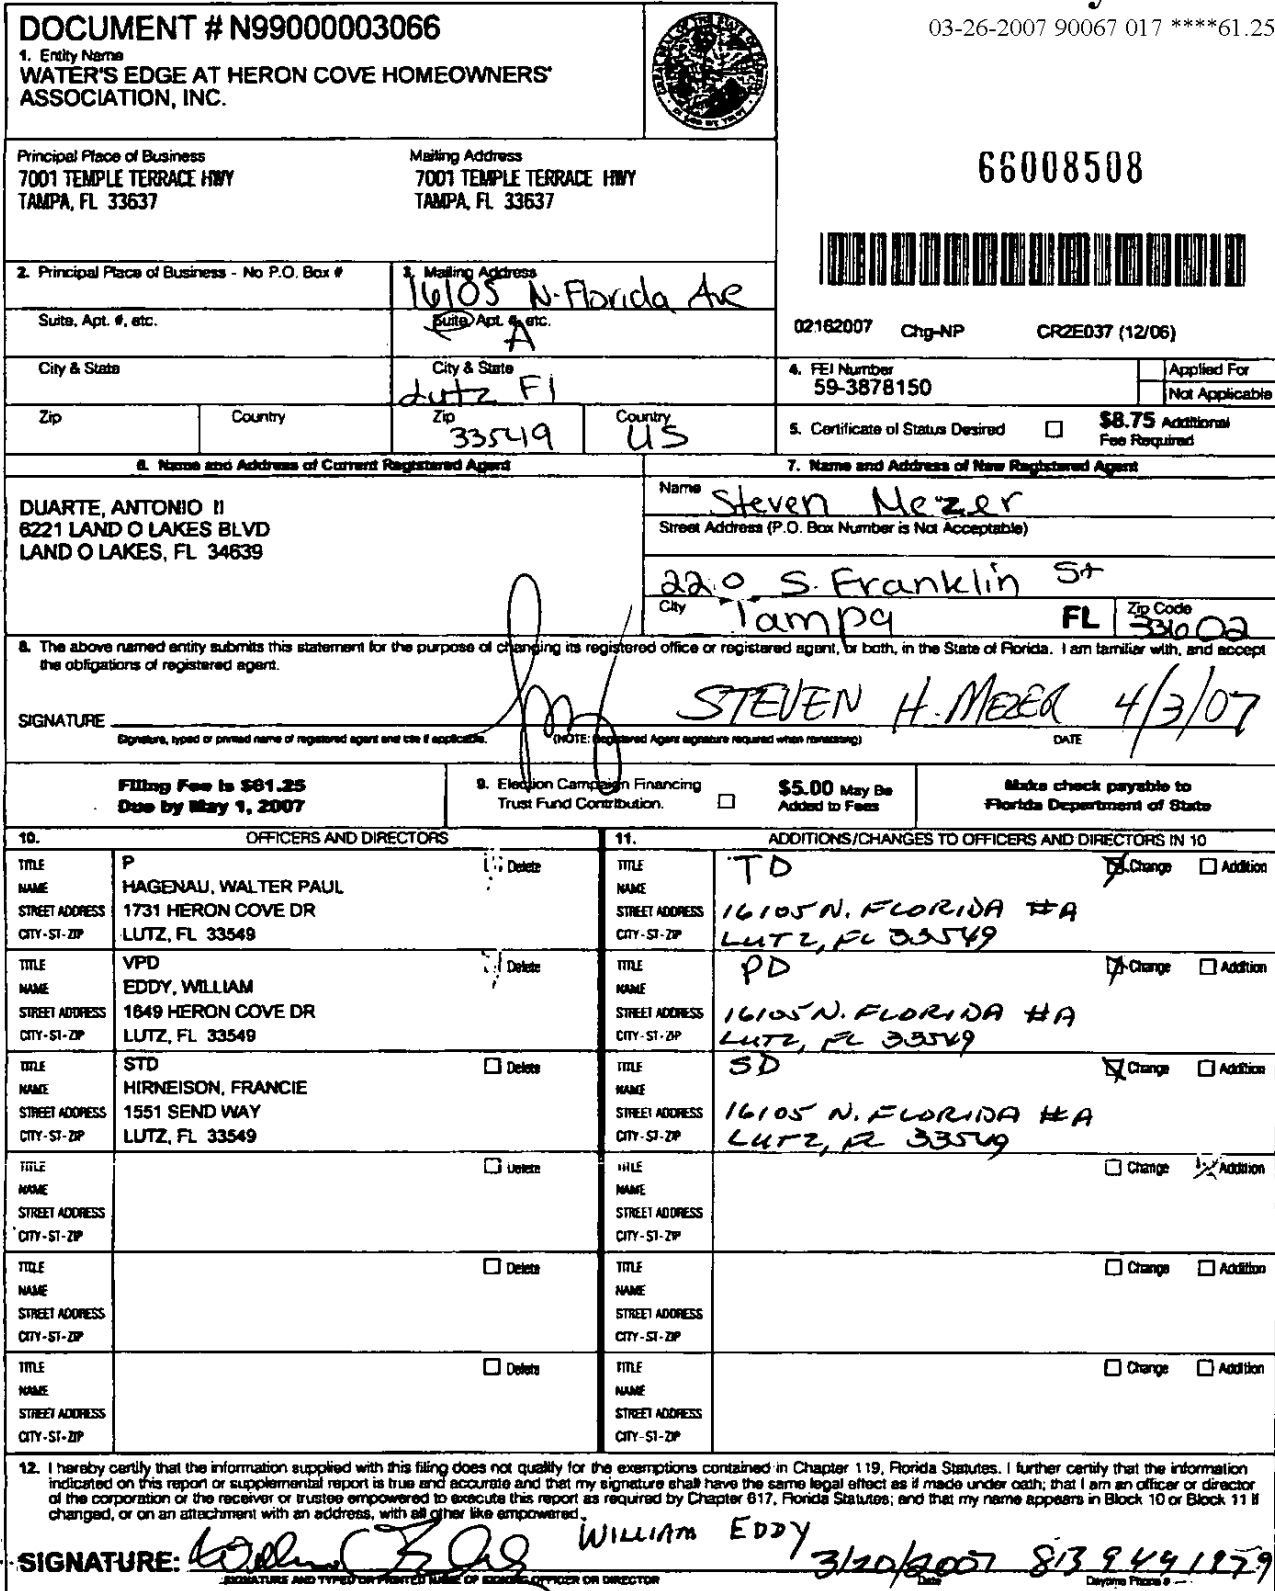 03-26-2007 90067 017 ****61.25
DOCUMENT # N99000003066
1. Entity Name
WATER'S EDGE AT HERON COVE HOMEOWNERS'
ASSOCIATION, INC.
Principal Place of Business
7001 TEMPLE TERRACE HWY
TAMPA, FL 33637
Mailing Address
7001 TEMPLE TERRACE HWY
TAMPA, FL 33637
66008508
2. Principal Place of Business - No P.O. Box #
3. Mailing Address
16105 N. Florida Ave
Suite, Apt. #, etc.
Suite, Apt. #, etc.
A
City & State
City & State
Lutz Fl
Zip
Country
Zip
33549
Country
US
02162007 Chg-NP CR2E037 (12/06)
4. FEI Number
59-3878150
Applied For
Not Applicable
5. Certificate of Status Desired
$8.75 Additional
Fee Required
6. Name and Address of Current Registered Agent
DUARTE, ANTONIO II
6221 LAND O LAKES BLVD
LAND O LAKES, FL 34639
7. Name and Address of New Registered Agent
Name Steven Mezer
Street Address (P.O. Box Number is Not Acceptable)
220 S. Franklin St
City Tampa FL Zip Code 33602
8. The above named entity submits this statement for the purpose of changing its registered office or registered agent, or both, in the State of Florida. I am familiar with, and accept
the obligations of registered agent.
SIGNATURE STEVEN H. MEZER 4/3/07
Signature, typed or printed name of registered agent and title if applicable. (NOTE: Registered Agent signature required when reinstating) DATE
Filing Fee is $61.25
Due by May 1, 2007
9. Election Campaign Financing
Trust Fund Contribution.
$5.00 May Be
Added to Fees
Make check payable to
Florida Department of State
10. OFFICERS AND DIRECTORS
11. ADDITIONS/CHANGES TO OFFICERS AND DIRECTORS IN 10
TITLE P Delete
NAME HAGENAU, WALTER PAUL
STREET ADDRESS 1731 HERON COVE DR
CITY-ST-ZIP LUTZ, FL 33549
TITLE TD Change Addition
NAME
STREET ADDRESS 16105 N. FLORIDA #A
CITY-ST-ZIP LUTZ, FL 33549
TITLE VPD Delete
NAME EDDY, WILLIAM
STREET ADDRESS 1649 HERON COVE DR
CITY-ST-ZIP LUTZ, FL 33549
TITLE PD Change Addition
NAME
STREET ADDRESS 16105 N. FLORIDA #A
CITY-ST-ZIP LUTZ, FL 33549
TITLE STD Delete
NAME HIRNEISON, FRANCIE
STREET ADDRESS 1551 SEND WAY
CITY-ST-ZIP LUTZ, FL 33549
TITLE SD Change Addition
NAME
STREET ADDRESS 16105 N. FLORIDA #A
CITY-ST-ZIP LUTZ, FL 33549
TITLE Delete
NAME
STREET ADDRESS
CITY-ST-ZIP
TITLE Change Addition
NAME
STREET ADDRESS
CITY-ST-ZIP
TITLE Delete
NAME
STREET ADDRESS
CITY-ST-ZIP
TITLE Change Addition
NAME
STREET ADDRESS
CITY-ST-ZIP
TITLE Delete
NAME
STREET ADDRESS
CITY-ST-ZIP
TITLE Change Addition
NAME
STREET ADDRESS
CITY-ST-ZIP
12. I hereby certify that the information supplied with this filing does not qualify for the exemptions contained in Chapter 119, Florida Statutes. I further certify that the information
indicated on this report or supplemental report is true and accurate and that my signature shall have the same legal effect as if made under oath; that I am an officer or director
of the corporation or the receiver or trustee empowered to execute this report as required by Chapter 617, Florida Statutes; and that my name appears in Block 10 or Block 11 if
changed, or on an attachment with an address, with all other like empowered.
WILLIAM EDDY
SIGNATURE: 3/20/2007 813 949 1879
SIGNATURE AND TYPED OR PRINTED NAME OF SIGNING OFFICER OR DIRECTOR Date Daytime Phone #